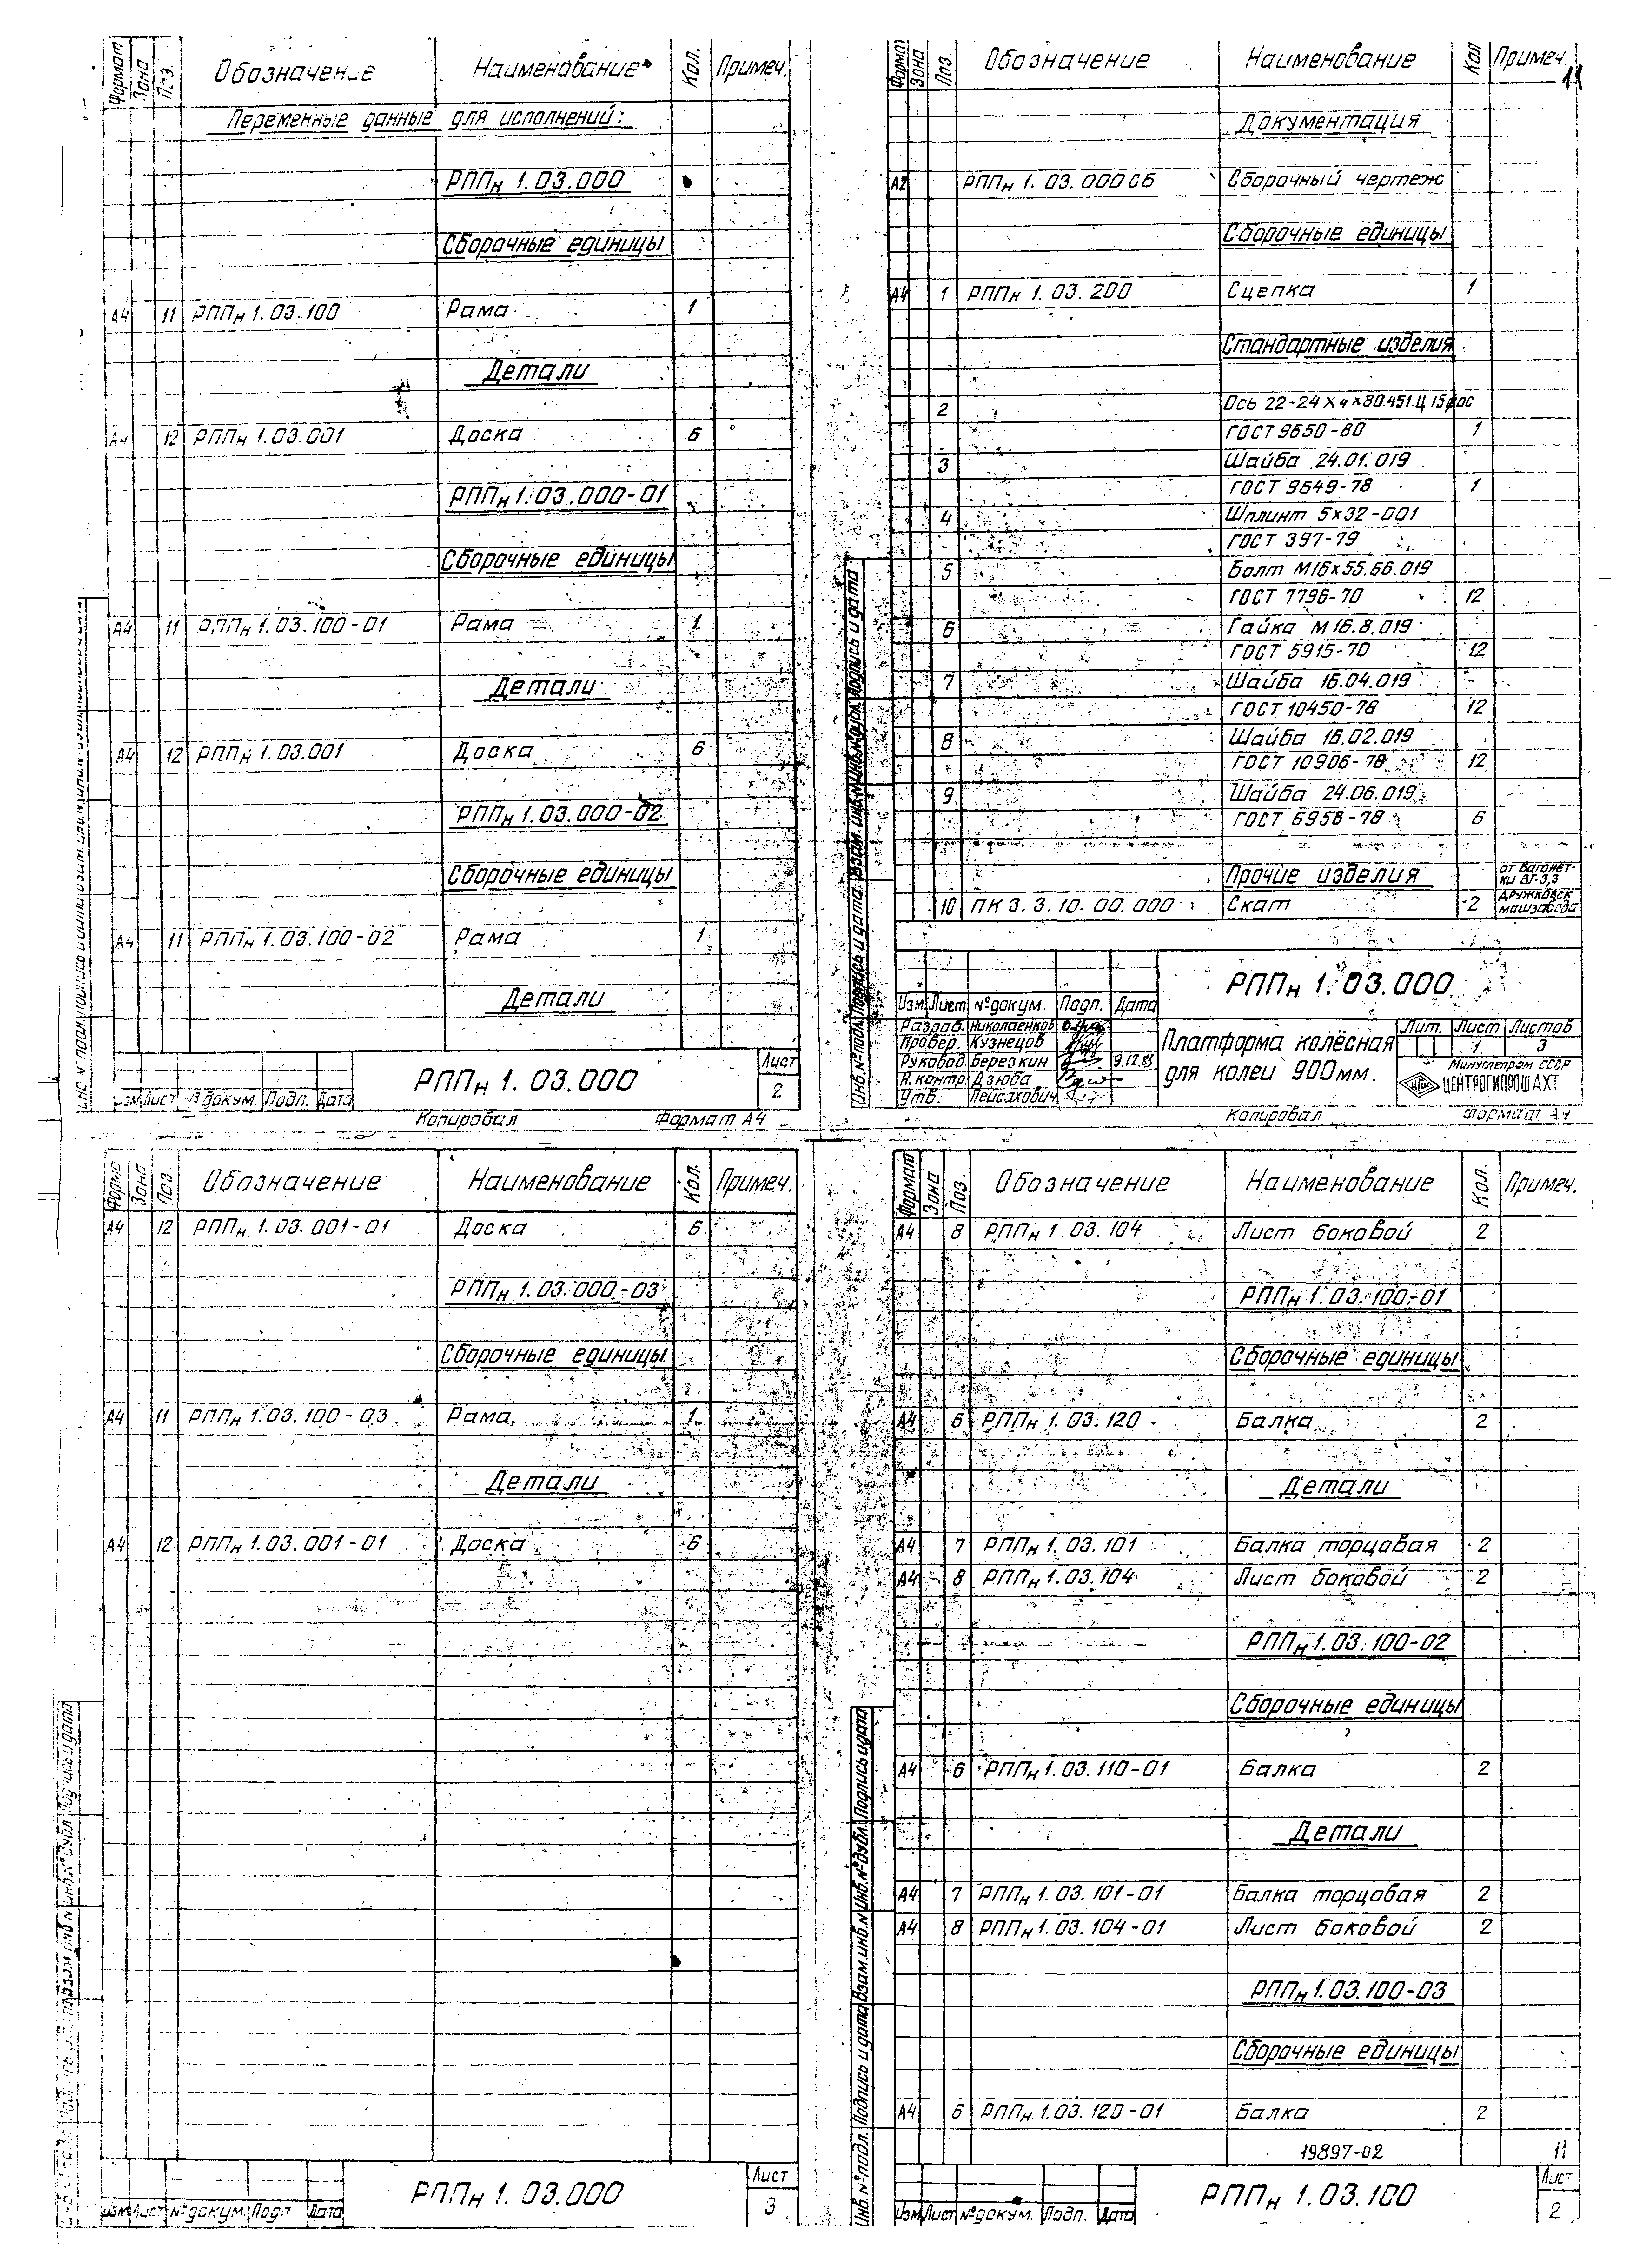 Формат Зона Поз. Обозначение Наименование Кол. Примеч.
Переменные данные для исполнений:
РППн 1.03.000
Сборочные единицы
А4 11 РППн 1.03.100 Рама 1
Детали
А4 12 РППн 1.03.001 Доска 6
РППн 1.03.000-01
Сборочные единицы
А4 11 РППн 1.03.100-01 Рама 1
Детали
А4 12 РППн 1.03.001 Доска 6
РППн 1.03.000-02
Сборочные единицы
А4 11 РППн 1.03.100-02 Рама 1
Детали
Изм Лист № докум. Подп. Дата
РППн 1.03.000
Лист
2
Копировал Формат А4
Формат Зона Поз. Обозначение Наименование Кол Примеч.
11
Документация
А2 РППн 1.03.000СБ Сборочный чертеж
Сборочные единицы
А4 1 РППн 1.03.200 Сцепка 1
Стандартные изделия
2 Ось 22-24
ГОСТ 9650-80 1
3 Шайба 24.01.019
ГОСТ 9649-78 1
4 Шплинт 5×32-001
ГОСТ 397-79
5 Болт М16×55.66.019
ГОСТ 7796-70 12
6 Гайка М16.8.019
ГОСТ 5915-70 12
7 Шайба 16.04.019
ГОСТ 10450-78 12
8 Шайба 16.02.019
ГОСТ 10906-78 12
9 Шайба 24.06.019
ГОСТ 6958-78 6
Прочие изделия от вагонет-
ки ВГ-3,3
10 ПК3.3.10.00.000 Скат 2 Дружковск.
машзавода
Изм. Лист № докум. Подп. Дата
Разраб. Николаенков
Провер. Кузнецов
Руковод. Березкин 9.12.85
Н.контр. Дзюба
Утв. Пейсахович
РППн 1.03.000
Платформа колёсная
для колеи 900мм.
Лит. Лист Листов
1 3
Минуглепром СССР
ЦЕНТРОГИПРОШАХТ
Копировал Формат А4
Инв.№ подл. Подпись и дата Взам.инв.№ Инв.№ дубл. Подпись и дата
Зона Поз. Обозначение Наименование Кол. Примеч.
А4 12 РППн 1.03.001-01 Доска 6
РППн 1.03.000-03
Сборочные единицы
А4 11 РППн 1.03.100-03 Рама 1
Детали
А4 12 РППн 1.03.001-01 Доска 6
Изм Лист № докум. Подп Дата
РППн 1.03.000
Лист
3
Формат Зона Поз. Обозначение Наименование Кол. Примеч.
А4 8 РППн 1.03.104 Лист боковой 2
РППн 1.03.100-01
Сборочные единицы
А4 6 РППн 1.03.120 Балка 2
Детали
А4 7 РППн 1.03.101 Балка торцовая 2
А4 8 РППн 1.03.104 Лист боковой 2
РППн 1.03.100-02
Сборочные единицы
А4 6 РППн 1.03.110-01 Балка 2
Детали
А4 7 РППн 1.03.101-01 Балка торцовая 2
А4 8 РППн 1.03.104-01 Лист боковой 2
РППн 1.03.100-03
Сборочные единицы
А4 6 РППн 1.03.120-01 Балка 2
19897-02 11
Изм Лист № докум. Подп. Дата
РППн 1.03.100
Лист
2
Инв.№ подл. Подпись и дата Взам.инв.№ Инв.№ дубл. Подпись и дата